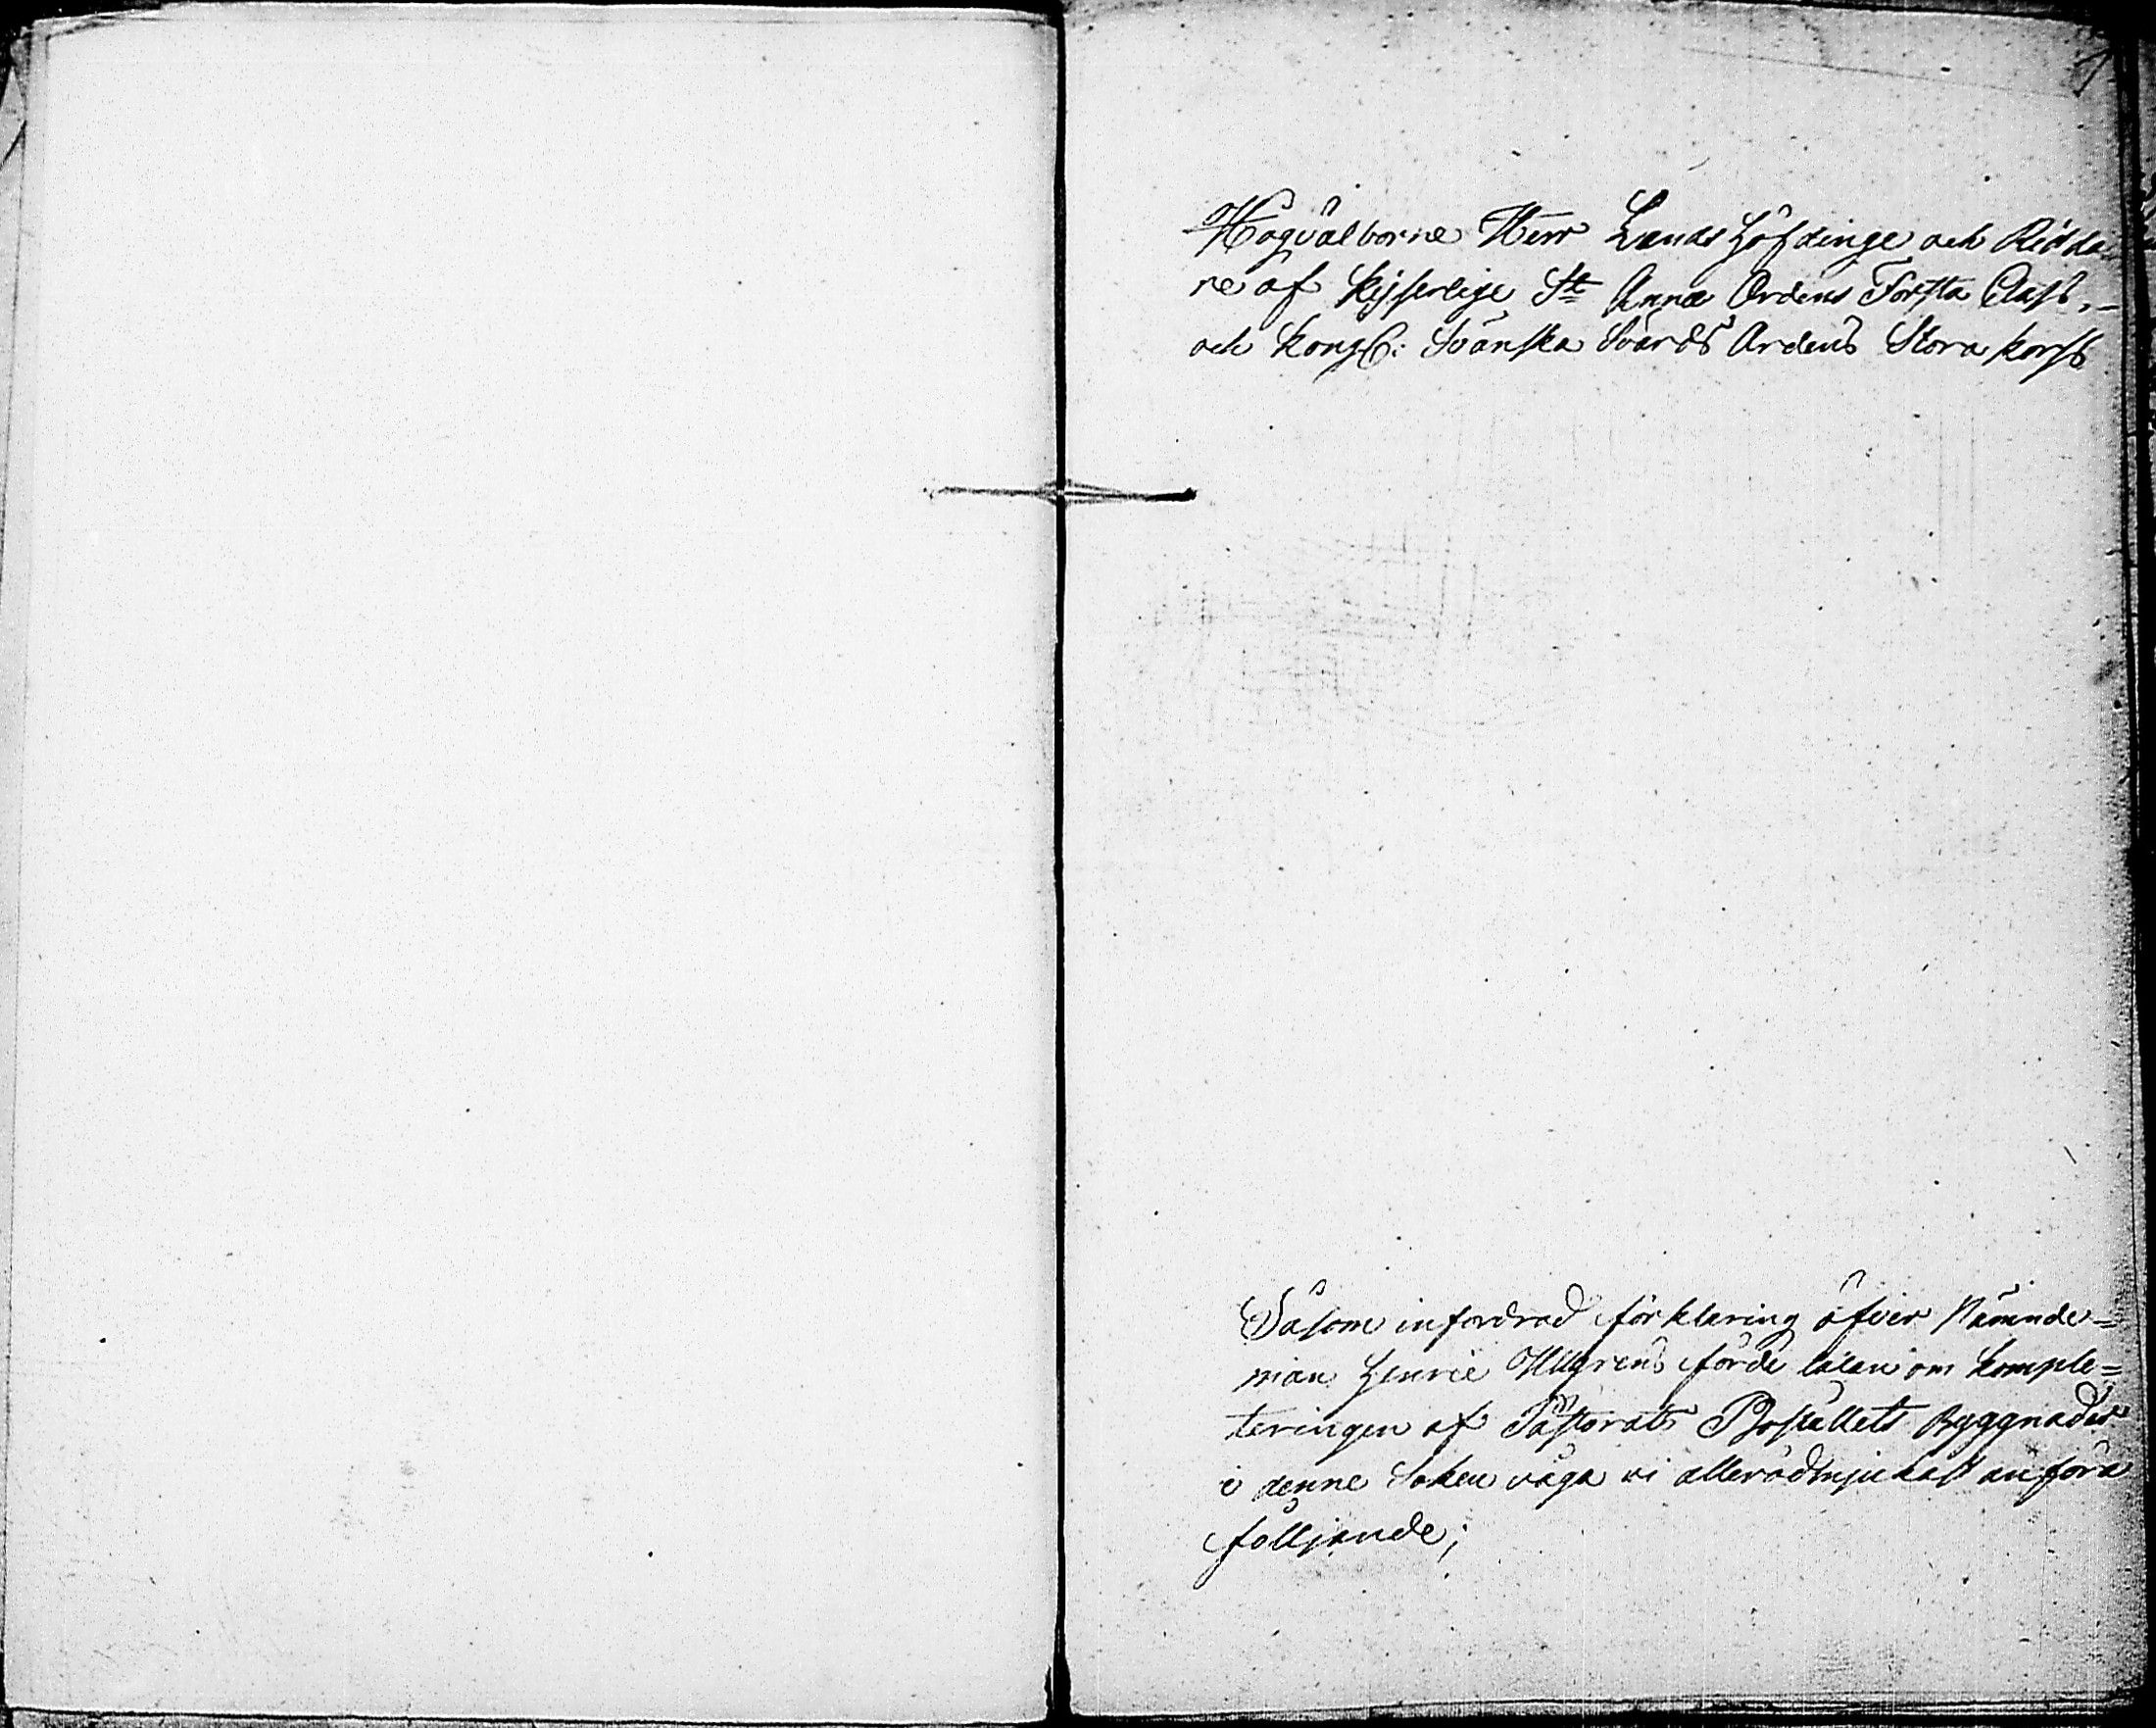 Högvälborne Herr Lands Höfdinge och Ridda
re af Kejserlige Ste Annæ Ordens Första Class,
och Kongl: Svänska Svärds Ordens Stora korss
Såsom infordrad förklaring öfver Nämnde=
man Henric Ullgrens förde talan om komple=
teringen af Pastorats Boställets Byggnader
i denne Soken våga vi allerödmjukast anföra
följande;